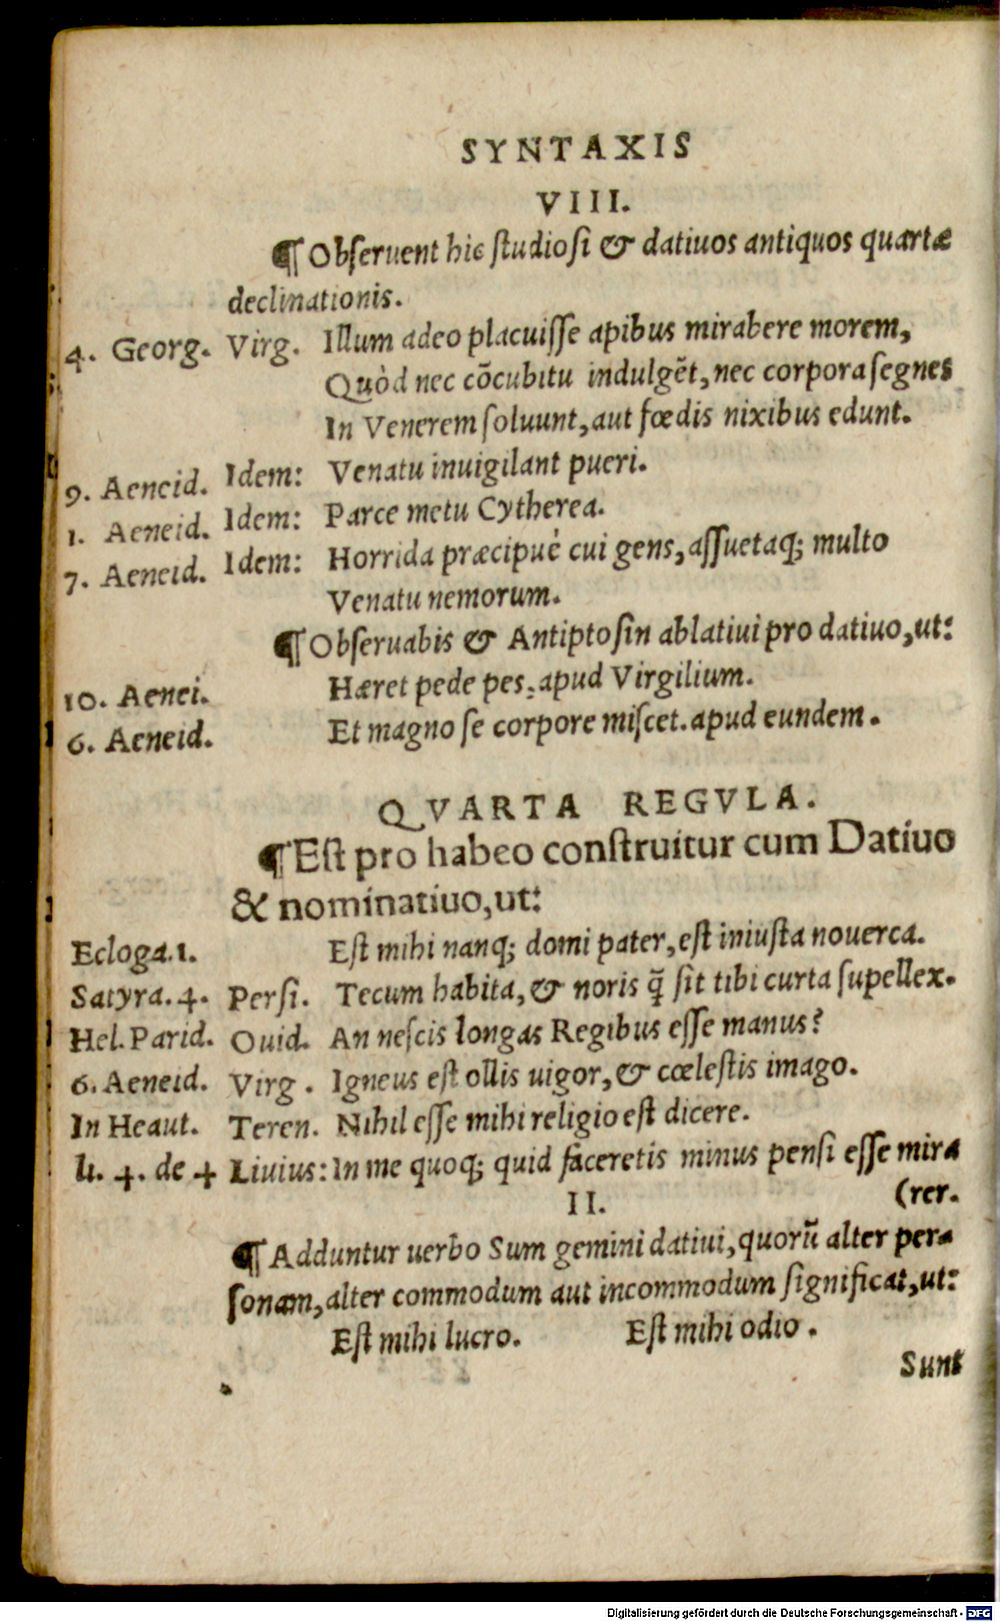 SYNTAXIS
VIII.
¶ Obseruent hic studiosi & datiuos antiquos quartæ
declinationis.
4. Georg. Virg. Illum adeo placuisse apibus mirabere morem,
Quòd nec cōcubitu indulgēt, nec corpora segnes
In Venerem soluunt, aut fœdis nixibus edunt.
9. Aeneid. Idem: Venatu inuigilant pueri.
1. Aeneid. Idem: Parce metu Cytherea.
7. Aeneid. Idem: Horrida præcipuè cui gens, assuetaq; multo
Venatu nemorum.
¶ Obseruabis & Antiptosin ablatiui pro datiuo, ut:
10. Aenei. Hæret pede pes: apud Virgilium.
6. Aeneid. Et magno se corpore miscet. apud eundem.
QVARTA REGVLA.
¶ Est pro habeo construitur cum Datiuo
& nominatiuo, ut:
Ecloga. 1. Est mihi nanq; domi pater, est iniusta nouerca.
Satyra. 4. Persi. Tecum habita, & noris q̃ sit tibi curta supellex.
Hel. Parid. Ouid. An nescis longas Regibus esse manus?
6. Aeneid. Virg. Igneus est ollis uigor, & cœlestis imago.
In Heaut. Teren. Nihil esse mihi religio est dicere.
li. 4. de 4 Liuius: In me quoq; quid faceretis minus pensi esse mira
(rer.
II.
¶ Adduntur uerbo Sum gemini datiui, quorũ alter per-
sonam, alter commodum aut incommodum significat, ut:
Est mihi lucro. Est mihi odio.
Sunt
Digitalisierung gefördert durch die Deutsche Forschungsgemeinschaft - DFG